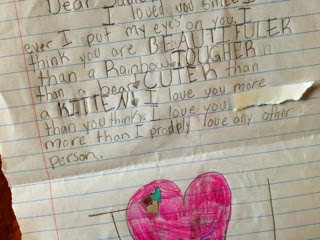 Dear
I loved you since
ever I put my eyes on you. I
think you are BEAUTIFULER
than a Rainbow TOUGHER
than a bear CUTER than
a KITTEN I love you more
than you think. I love you
more than I prodply love any other
person.
I